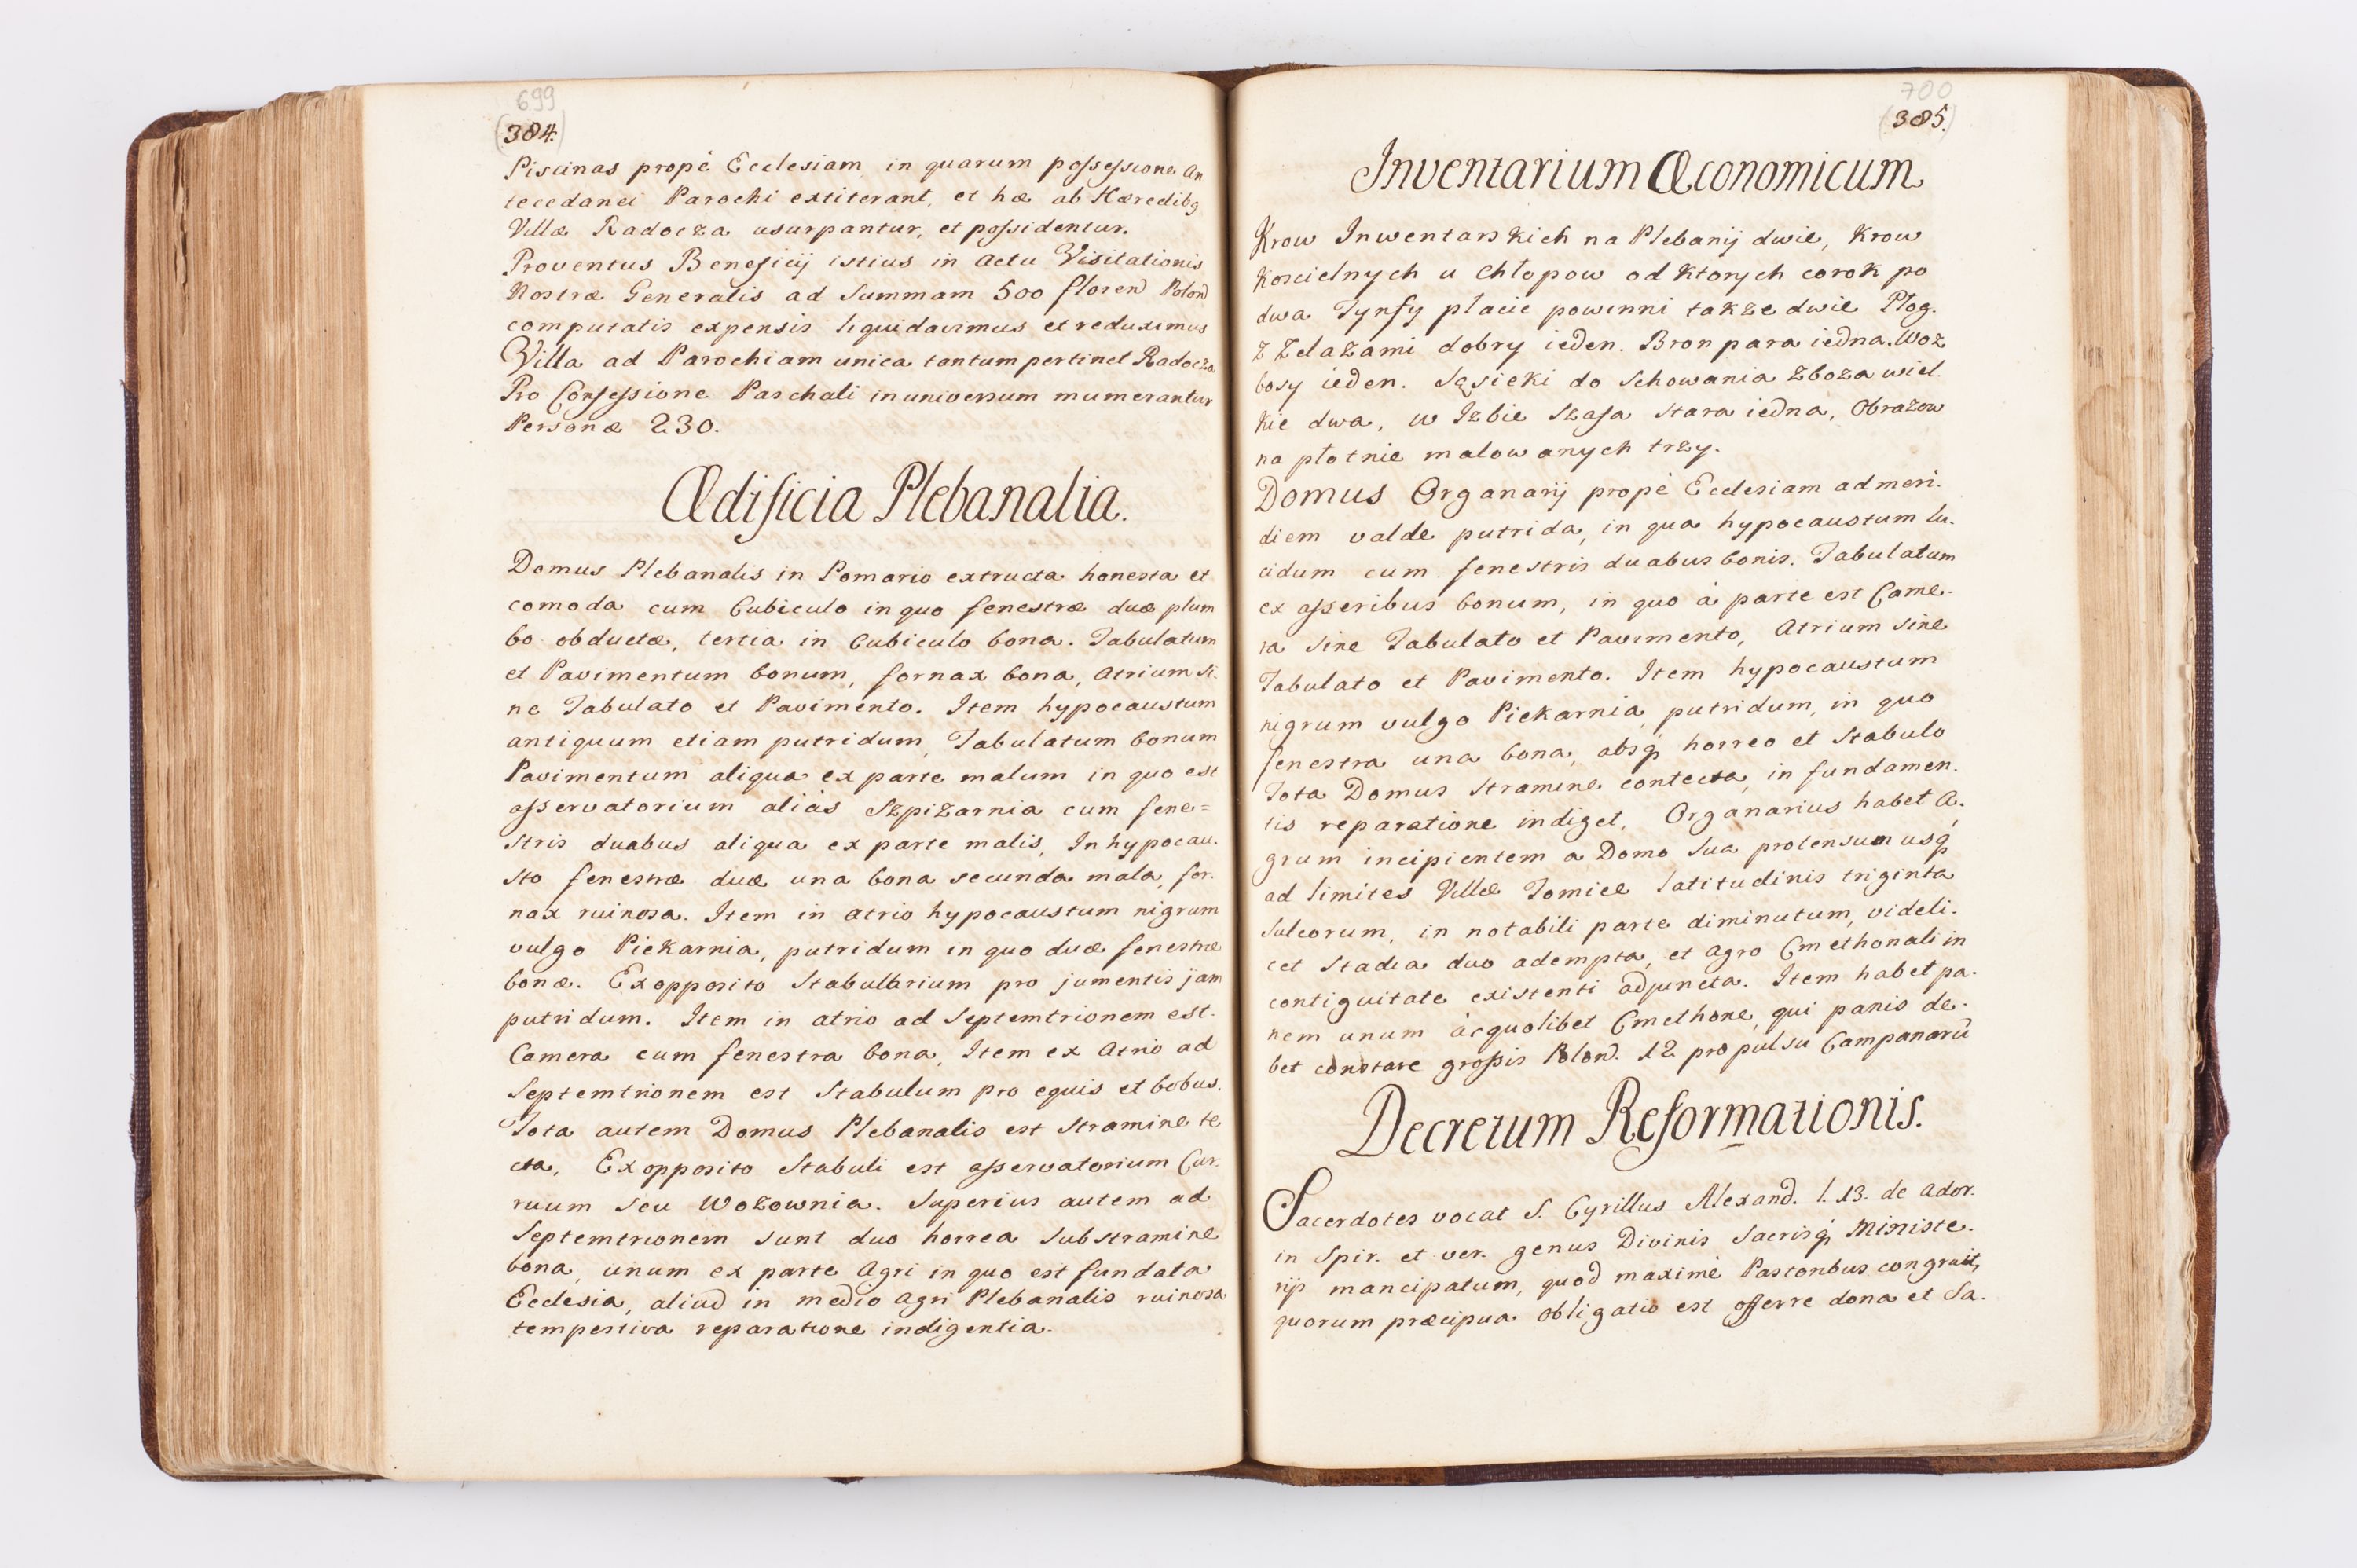 699
(384.)
Piscinas propè Ecclesiam in quarum possessione An
tecedanei Parochi extiterant, et hæ ab Hæredibq
Villæ Radocza usurpantur, et possidentur.
Proventus Beneficij istius in Actu Visitationis
Nostræ Generalis ad Summam 500 floren Polon
computatis expensis liquidavimus et reduximus
Villa ad Parochiam unica tantum pertinet Radocza
Pro Confessione Paschali in universum numerantur
Personæ 230.
Ædificia Plebanalia.
Domus Plebanalis in Pomario extructa honesta et
comoda cum Cubiculo in quo fenestræ duæ plum
bo obductæ, tertia in Cubiculo bona. Tabulatum
et Pavimentum bonum, fornax bona, Atrium si-
ne Tabulato et Pavimento. Item hypocaustum
antiquum etiam putridum, Tabulatum bonum
Pavimentum aliqua ex parte malum in quo est
asservatorium aliàs Szpiżarnia cum fene=
stris duabus aliqua ex parte malis, In hypocau-
sto fenestræ duæ una bona secunda mala, for-
nax ruinosa. Item in atrio hypocaustum nigrum
vulgo Piekarnia, putridum in quo duæ fenestræ
bonæ. Ex opposito Stabullarium pro jumentis jam
putridum. Item in atrio ad Septemtrionem est-
Camera cum fenestra bona, Item ex Atrio ad
Septemtrionem est Stabulum pro equis et bobus.
Tota autem Domus Plebanalis est Stramine te
cta, Ex opposito Stabuli est asservatorium Cur-
ruum seu Wozownia. Superius autem ad
Septemtrionem sunt duo horrea sub stramine
bona, unum ex parte Agri in quo est fundata
Ecclesia, aliud in medio agri Plebanalis ruinosa
tempestiva reparatione indigentia.
700
(385.)
Inventarium Œconomicum
Krow Inwentarskich na Plebanij dwie, Krow
Koscielnych u Chłopow od Ktorych corok po
dwa Tynfy płacic powinni takze dwie Płog.
z Zelazami dobry ieden. Bron para iedna. Woz
bosy ieden. Sąsieki do Schowania Zboza wiel-
kie dwa, w Izbie Szafa stara iedna, Obrazow
na płotnie malowanych trzy.
Domus Organarij propè Ecclesiam ad meri-
diem valde putrida, in qua hypocaustum lu-
cidum cum fenestris duabus bonis. Tabulatum
ex asseribus bonum, in quo à parte est Came-
ra sine Tabulato et Pavimento, Atrium sine
Tabulato et Pavimento. Item hypocaustum
nigrum vulgo Piekarnia putridum, in quo
fenestra una bona, absq; horreo et Stabulo
Tota Domus Stramine contecta, in fundamen-
tis reparatione indiget. Organarius habet A-
grum incipientem a Domo Sua protensum usq;
ad limites Villæ Tomice latitudinis triginta
Sulcorum, in notabili parte diminutum, videli-
cet Stadia duo adempta, et Agro Cmethonali in
contiguitate existenti adjuncta. Item habet pa-
nem unum àcquolibet Cmethone, qui panis de-
bet constare grossis Polon. 12 pro pulsu Campanarũ
Decretum Reformationis.
Sacerdotes vocat S. Cyrillus Alexand. l. 13. de Ador.
in Spir. et ver. genus Divinis Sacrisq; Ministe-
rijs mancipatum, quod maximè Pastoribus congruit,
quorum præcipua obligatio est offerre dona et Sa-